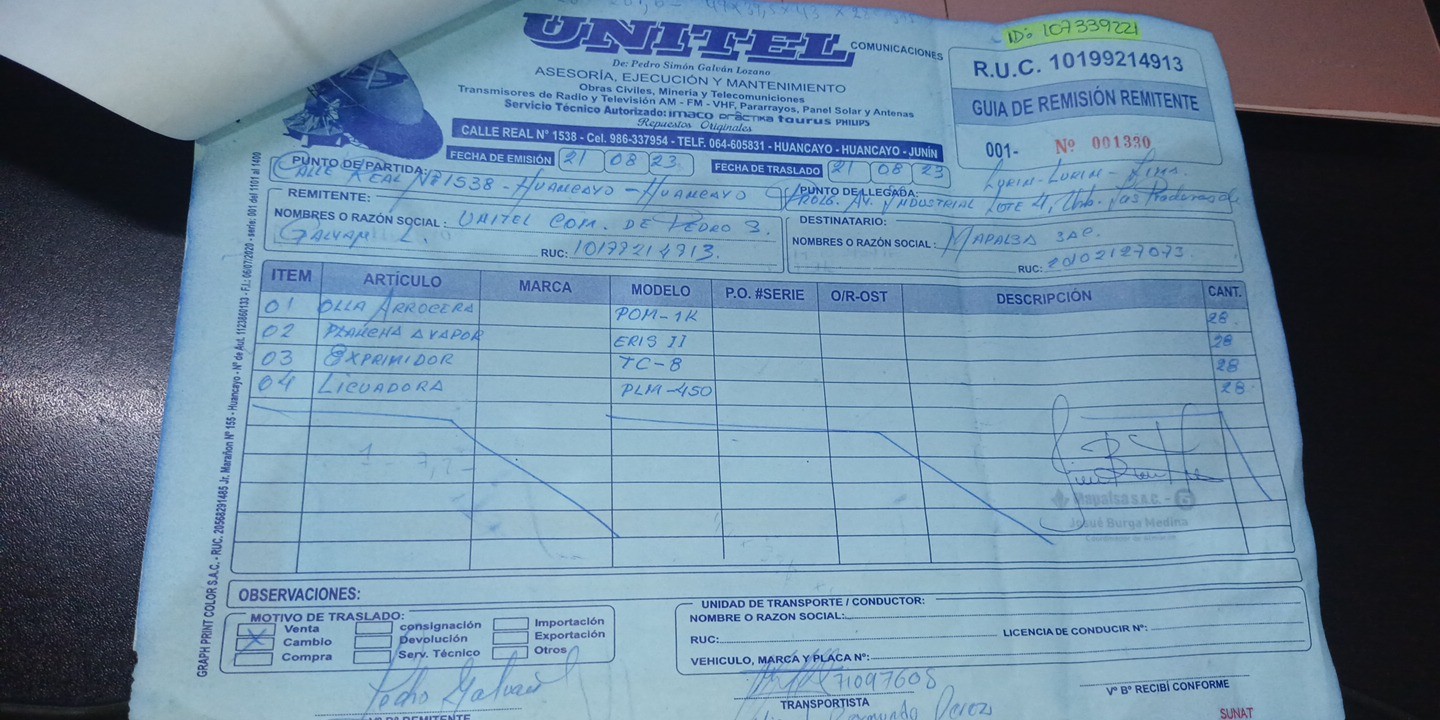 ID: 107339221
UNITEL COMUNICACIONES
De: Pedro Simón Galván Lozano
ASESORÍA, EJECUCIÓN Y MANTENIMIENTO
Obras Civiles, Minería y Telecomuniciones
Transmisores de Radio y Televisión AM - FM - VHF, Pararrayos, Panel Solar y Antenas
Servicio Técnico Autorizado: imaco práctika taurus PHILIPS
Repuestos Originales
CALLE REAL N° 1538 - Cel. 986-337954 - TELF. 064-605831 - HUANCAYO - HUANCAYO - JUNÍN
R.U.C. 10199214913
GUIA DE REMISIÓN REMITENTE
001- Nº 001330
FECHA DE EMISIÓN 21 08 23 FECHA DE TRASLADO 21 08 23
PUNTO DE PARTIDA:
CALLE REAL Nº 1538 - HUANCAYO - HUANCAYO
PUNTO DE LLEGADA: LURIN - LURIN - LIMA.
PROLG. AV. INDUSTRIAL LOTE 4, Urb. Las Praderas de
REMITENTE:
NOMBRES O RAZÓN SOCIAL: UNITEL COM. DE PEDRO S.
GALVAN L.
RUC: 10199214913.
DESTINATARIO:
NOMBRES O RAZÓN SOCIAL: MAPALSA SAC.
RUC: 20102127073
ITEM ARTÍCULO MARCA MODELO P.O. #SERIE O/R-OST DESCRIPCIÓN CANT.
01 OLLA ARROCERA POM-1K 28.
02 PLANCHA A VAPOR ERIS II 28
03 EXPRIMIDOR TC-8 28
04 LICUADORA PLM-450 28
Mapalsa S.A.C. - G
Josué Burga Medina
OBSERVACIONES:
MOTIVO DE TRASLADO:
Venta consignación Importación
X Cambio Devolución Exportación
Compra Serv. Técnico Otros
UNIDAD DE TRANSPORTE / CONDUCTOR:
NOMBRE O RAZON SOCIAL:
RUC: LICENCIA DE CONDUCIR Nº:
VEHICULO, MARCA Y PLACA Nº:
Pedro Galvan
Vº Bº REMITENTE
71097608
TRANSPORTISTA
Raymundo Perez
Vº Bº RECIBÍ CONFORME
SUNAT
GRAPH PRINT COLOR S.A.C. - RUC. 20568291485 Jr. Marañon Nº 155 - Huancayo - Nº de Aut. 1123860133 - F.I.: 06/07/2020 - serie: 001 del 1101 al 1400